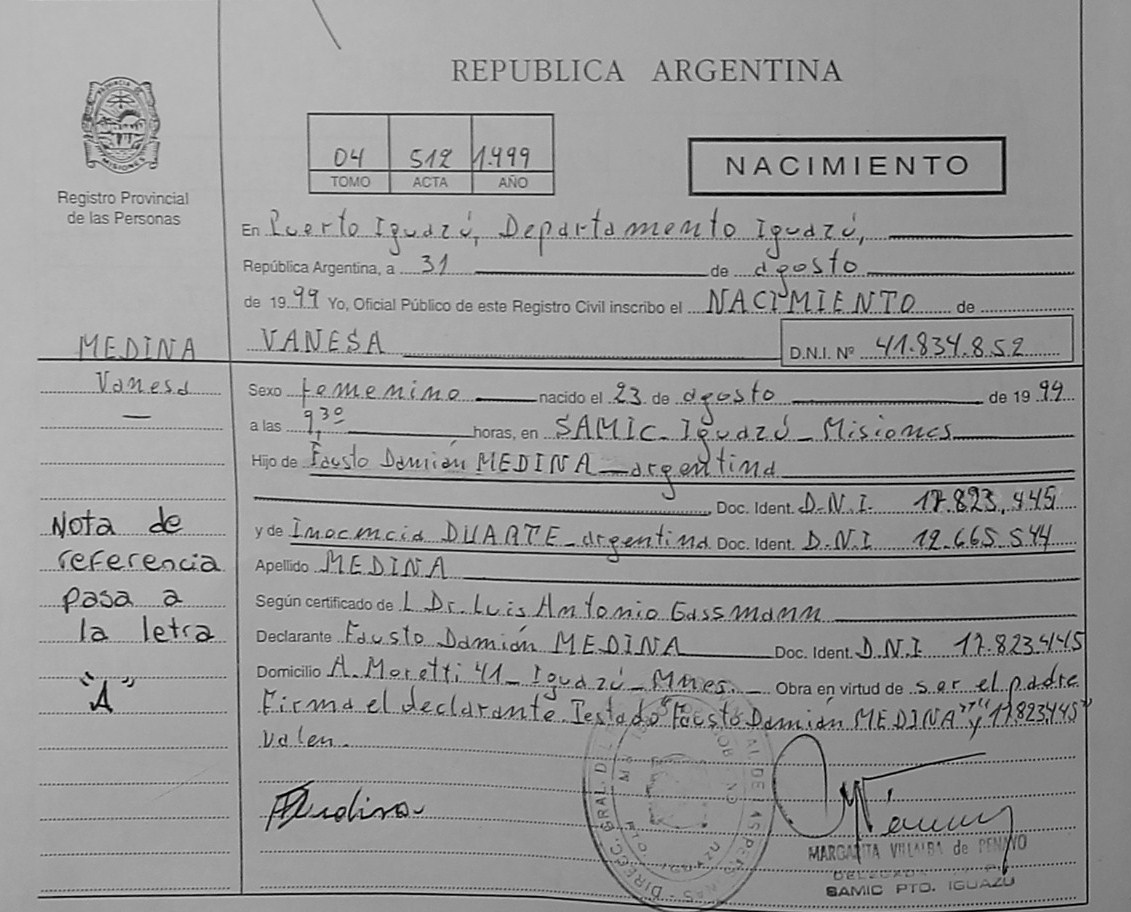 REPUBLICA ARGENTINA
PROVINCIA DE MISIONES
Registro Provincial
de las Personas
04 512 1.999
TOMO ACTA AÑO
NACIMIENTO
En Puerto Iguazú, Departamento Iguazú,
República Argentina, a 31 de agosto
de 1999 Yo, Oficial Público de este Registro Civil inscribo el NACIMIENTO de
VANESA D.N.I. Nº 41.834.852
MEDINA
Vanesa
—
Nota de
referencia
pasa a
la letra
"A"
Sexo femenino nacido el 23 de agosto de 1999
a las 9,30 horas, en SAMIC. Iguazú - Misiones
Hijo de Fausto Damián MEDINA - argentina
Doc. Ident. D.N.I. 17.823.445
y de Inocencia DUARTE - argentina Doc. Ident. D.N.I 12.665.544
Apellido MEDINA
Según certificado de L Dr. Luis Antonio Gassmann
Declarante Fausto Damián MEDINA Doc. Ident. D.N.I 17.823.445
Domicilio A. Moretti 41 - Iguazú - Mnes. - Obra en virtud de ser el padre
Firma el declarante Testado "Fausto Damián MEDINA" y "17.823.445"
Valen.
MARGARITA VILLALBA de PENAYO
SAMIC PTO. IGUAZU